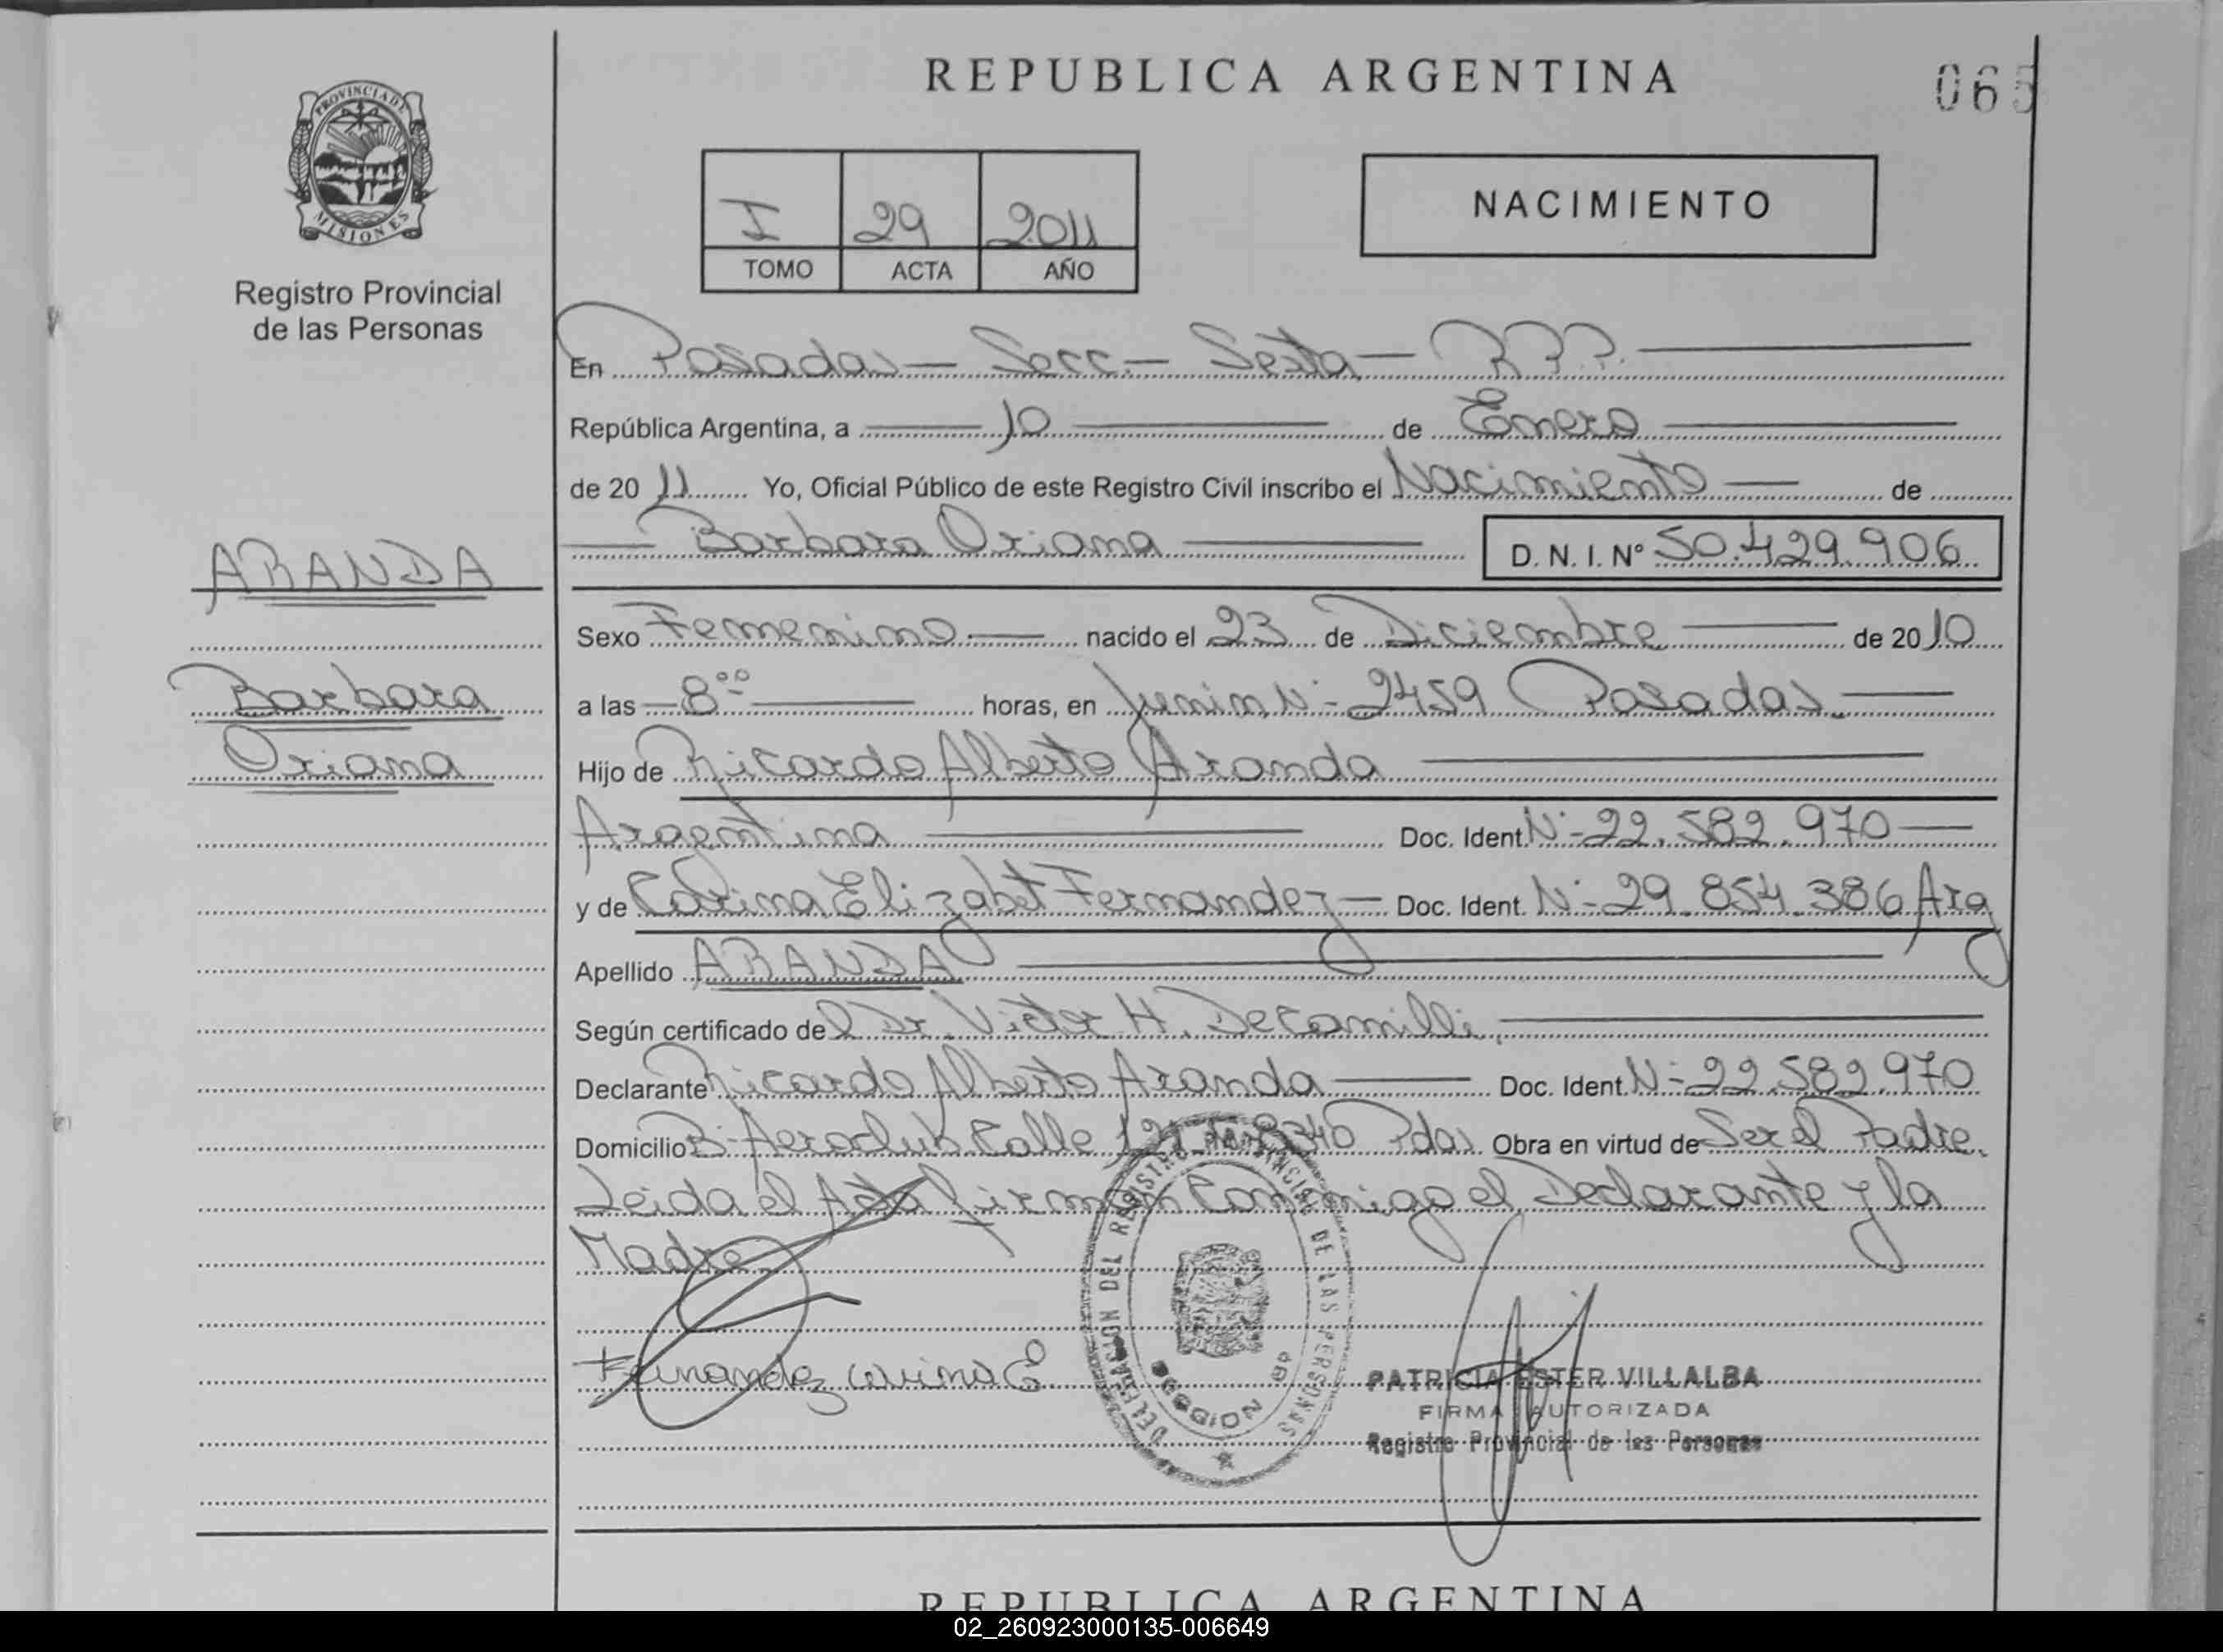 REPUBLICA ARGENTINA
065
PROVINCIA DE
MISIONES
Registro Provincial
de las Personas
I 29 2011
TOMO ACTA AÑO
NACIMIENTO
En Posadas - Secc. - Sexta - R.P.P.
República Argentina, a 10 de Enero
de 2011 Yo, Oficial Público de este Registro Civil inscribo el Nacimiento de
Barbara Oriana D. N. I. Nº 50.429.906
ARANDA
Barbara
Oriana
Sexo Femenino nacido el 23 de Diciembre de 2010
a las 8°° horas, en Junin Nº 2459 Posadas
Hijo de Ricardo Alberto Aranda
Argentina Doc. Ident. Nº 22.582.970
y de Carina Elizabet Fernandez Doc. Ident. Nº 29.854.386 Arg
Apellido ARANDA
Según certificado del Dr. Victor H. Decamilli
Declarante Ricardo Alberto Aranda Doc. Ident. Nº 22.582.970
Domicilio Bº Aeroclub Calle Pdas. Obra en virtud de Ser el Padre.
Leida el Acta firman conmigo el Declarante y la
Madre
Fernandez Carina E
DELEGACION DEL REGISTRO PROVINCIAL DE LAS PERSONAS
SECCION 6ta
PATRICIA ESTER VILLALBA
FIRMA AUTORIZADA
Registro Provincial de las Personas
REPUBLICA ARGENTINA
02_260923000135-006649